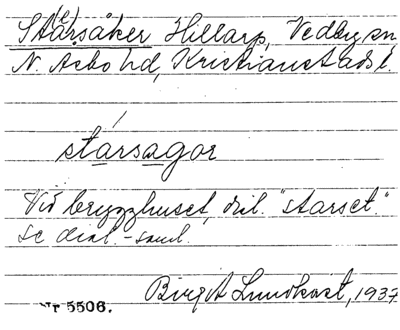 St(e)arsåker Hillarp, Vedby sn,
N. Åsbo hd, Kristianstads l.
stársagor
Vid brygghuset, dial. "starset."
Se dial.-saml.
Birgit Lundkvist, 1937
Nr 5506.